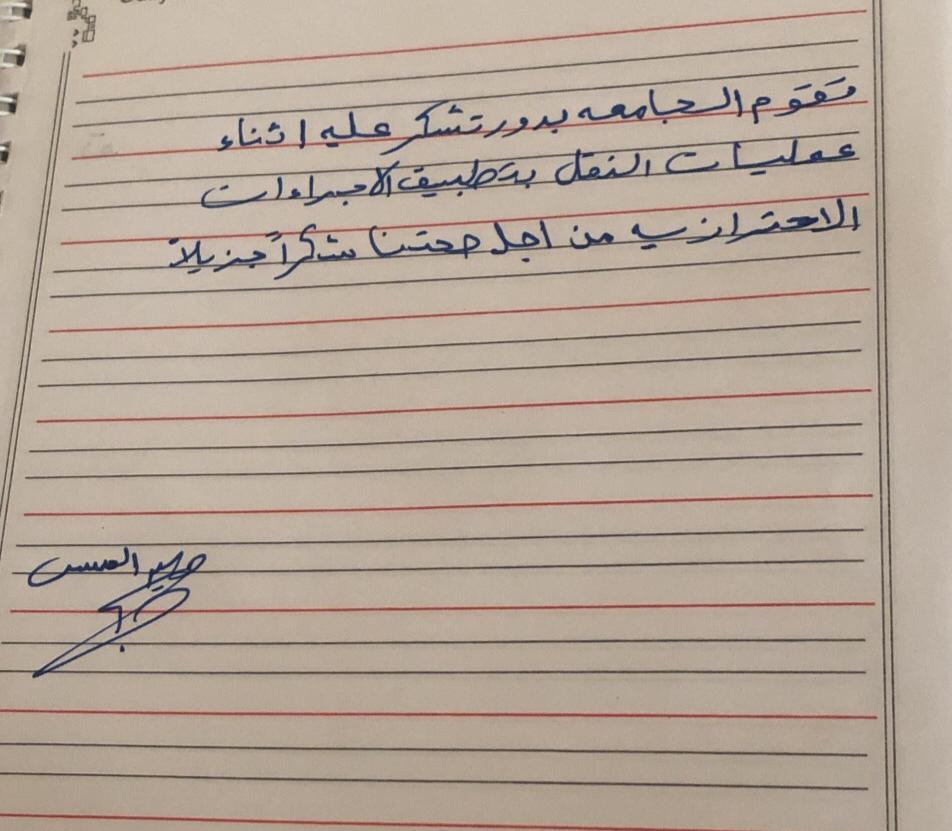 تقوم الجامعه بدور تشكر عليه اثناء
عمليات النقل بتطبيق الاجراءات
الاحترازيه من اجل صحتنا شكراً جزيلاً